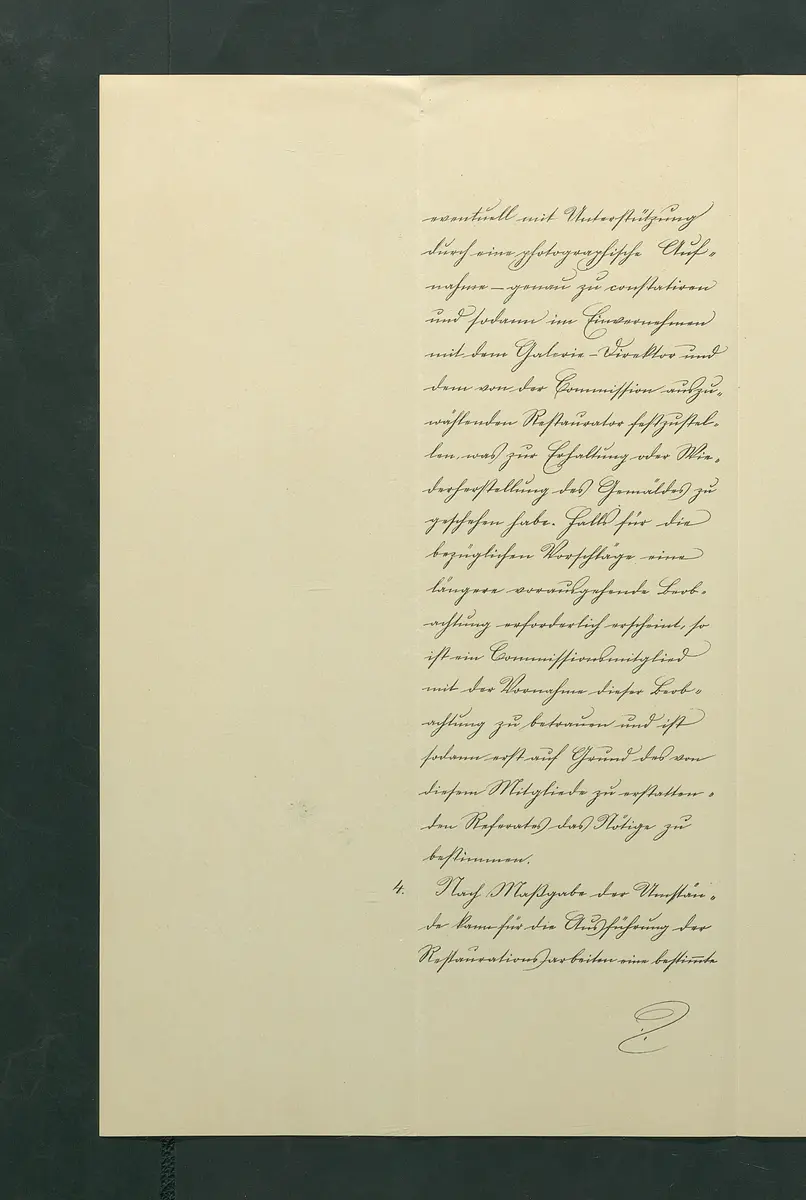 eventuell mit Unterstützung
durch eine photographische Auf-
nahme – genau zu constatiren
und sodann im Einvernehmen
mit dem Galerie-Direktor und
dem von der Commission auszu-
wählenden Restaurator festzustel-
len, was zur Erhaltung oder Wie-
derherstellung des Gemäldes zu
geschehen habe. Falls für die
bezüglichen Vorschläge eine
längere vorausgehende Beob-
achtung erforderlich erscheint, so
ist ein Commissionsmitglied
mit der Vornahme dieser Beob-
achtung zu betrauen und ist
sodann erst auf Grund des von
diesem Mitgliede zu erstatten-
den Referates das Nötige zu
bestimmen.
4. Nach Maßgabe der Umstän-
de kann für die Ausführung der
Restaurationsarbeiten eine bestimmte